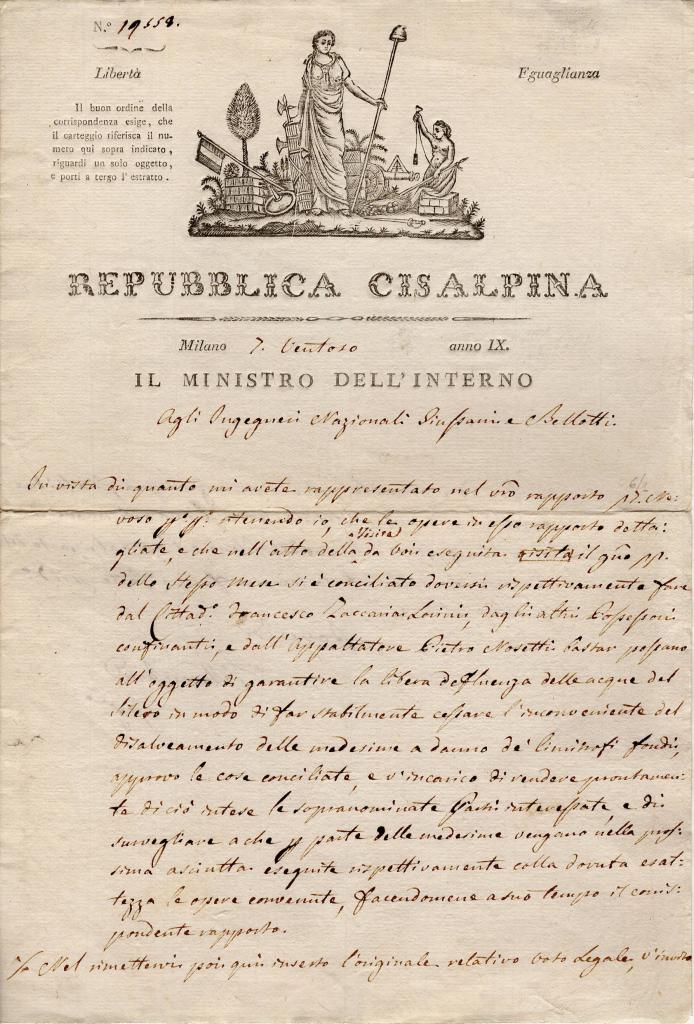 N.º 19558.
Libertà
Eguaglianza
Il buon ordine della
corrispondenza esige, che
il carteggio riferisca il nu-
mero qui sopra indicato,
riguardi un solo oggetto,
e porti a tergo l'estratto.
REPUBBLICA CISALPINA
Milano 7. Ventoso anno IX.
IL MINISTRO DELL'INTERNO
Agli Ingegneri Nazionali Giussani e Bellotti.
In vista di quanto mi avete rappresentato nel vrõ rapporto Ne-
voso ritenendo io, che le opere in esso rapporto detta-
gliate, e che nell'atto della visita da voi eseguita il
dello stesso mese si è conciliato doversi rispettivamente fare
dal Cittad.º Francesco Zaccaria dagli altri Possessori
confinanti, e dall'Appaltatore Pietro Nosetti bastar possano
all'oggetto di garantire la libera defluenza delle acque del
in modo di far stabilmente cessare l'inconveniente del
disalveamento delle medesime a danno de' limitrofi fondi,
approvo le cose conciliate, e v'incarico di rendere prontamen-
te di ciò intese le sopranominate Parti interessate, e di
sorvegliare a che p parte delle medesime vengano nella pros-
sima asciutta eseguite rispettivamente colla dovuta esat-
tezza le opere convenute, facendomene a suo tempo il corris-
pondente rapporto.
Nel rimettervi poi qui inserto l'originale relativo voto Legale, v'invito